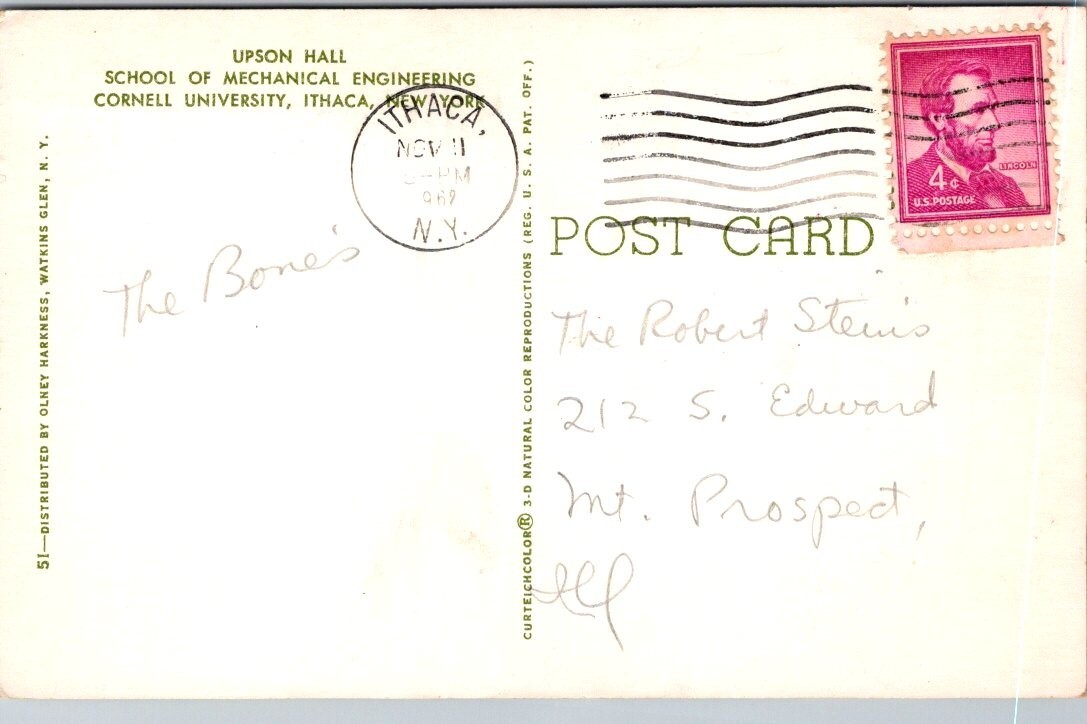 UPSON HALL
SCHOOL OF MECHANICAL ENGINEERING
CORNELL UNIVERSITY, ITHACA, NEW YORK
51—DISTRIBUTED BY OLNEY HARKNESS, WATKINS GLEN, N. Y.
ITHACA,
NOV 11
PM
N.Y.
The Bone's
CURTEICHCOLOR® 3-D NATURAL COLOR REPRODUCTIONS (REG. U. S. A. PAT. OFF.)
LINCOLN
4¢
U.S. POSTAGE
POST CARD
The Robert Stein's
212 S. Edward
Mt. Prospect,
Ill